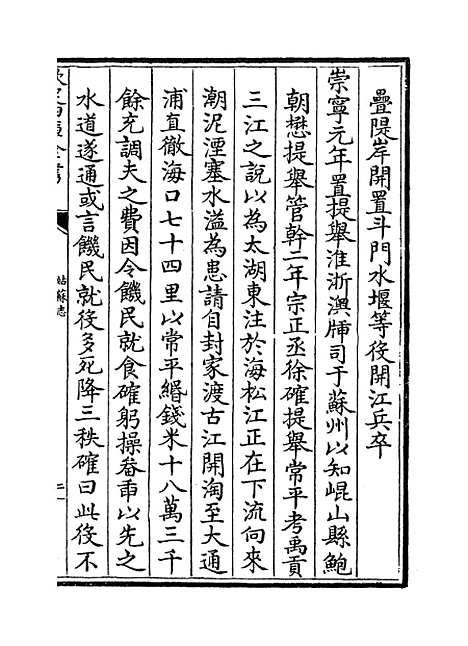 疊隄岸開置斗門水堰等後開江兵卒
崇寧元年置提舉淮浙澳牐司于蘇州以知崐山縣鮑
朝懋提舉管幹二年宗正丞徐確提舉常平考禹貢
三江之說以為太湖東注於海松江正在下流向來
潮泥湮塞水溢為患請自封家渡古江開淘至大通
浦直徹海口七十四里以常平緡錢米十八萬三千
餘充調夫之費因令饑民就食確躬操畚臿以先之
水道遂通或言饑民就役多死降三秩確曰此役不
欽定四庫全書
姑蘇志